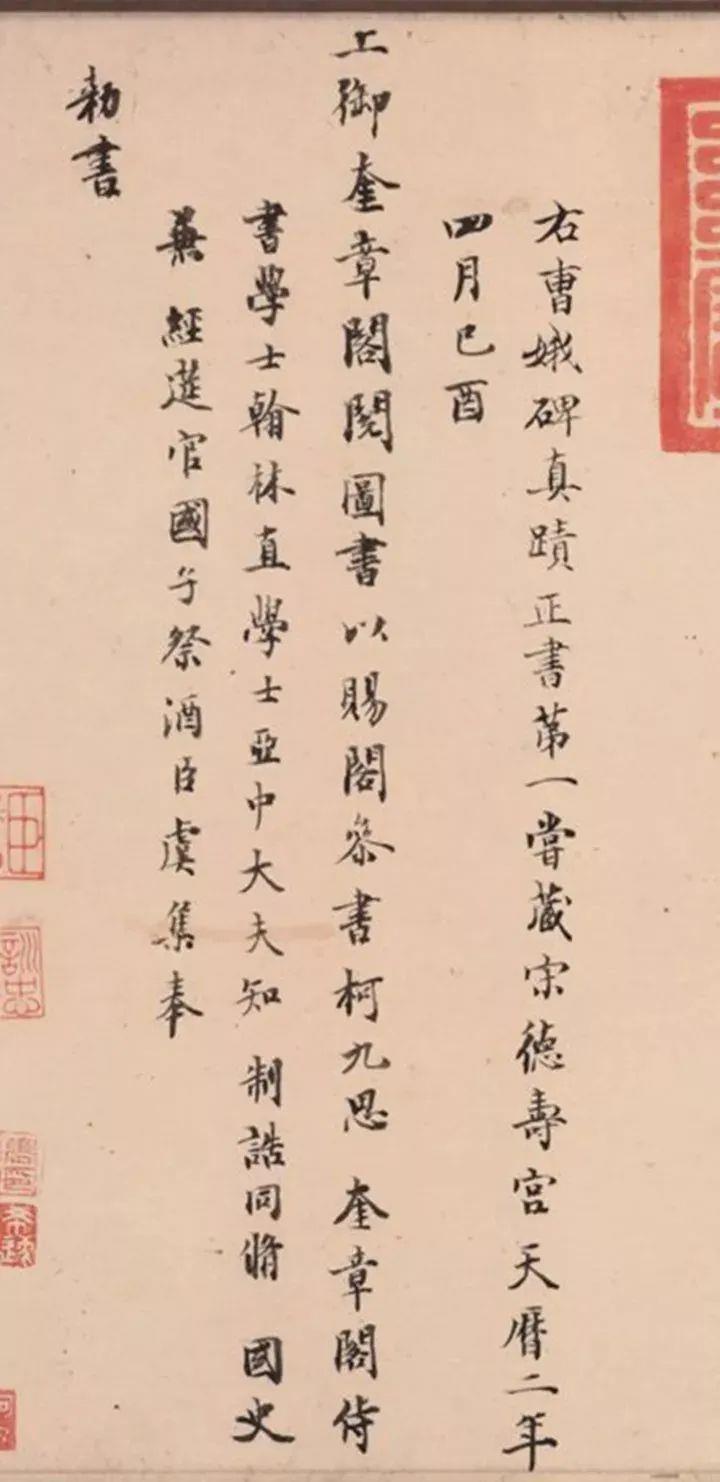 右曹娥碑真蹟正書第一嘗藏宋德壽宮天曆二年
四月己酉
上御奎章閣閱圖書以賜閣叅書柯九思奎章閣侍
書學士翰林直學士亞中大夫知制誥同脩國史
兼經筵官國子祭酒臣虞集奉
勑書
訓忠